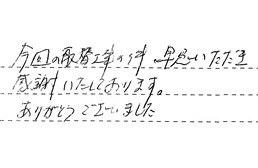 今回の取替工事の件 早急いただき
感謝いたしております。
ありがとうございました